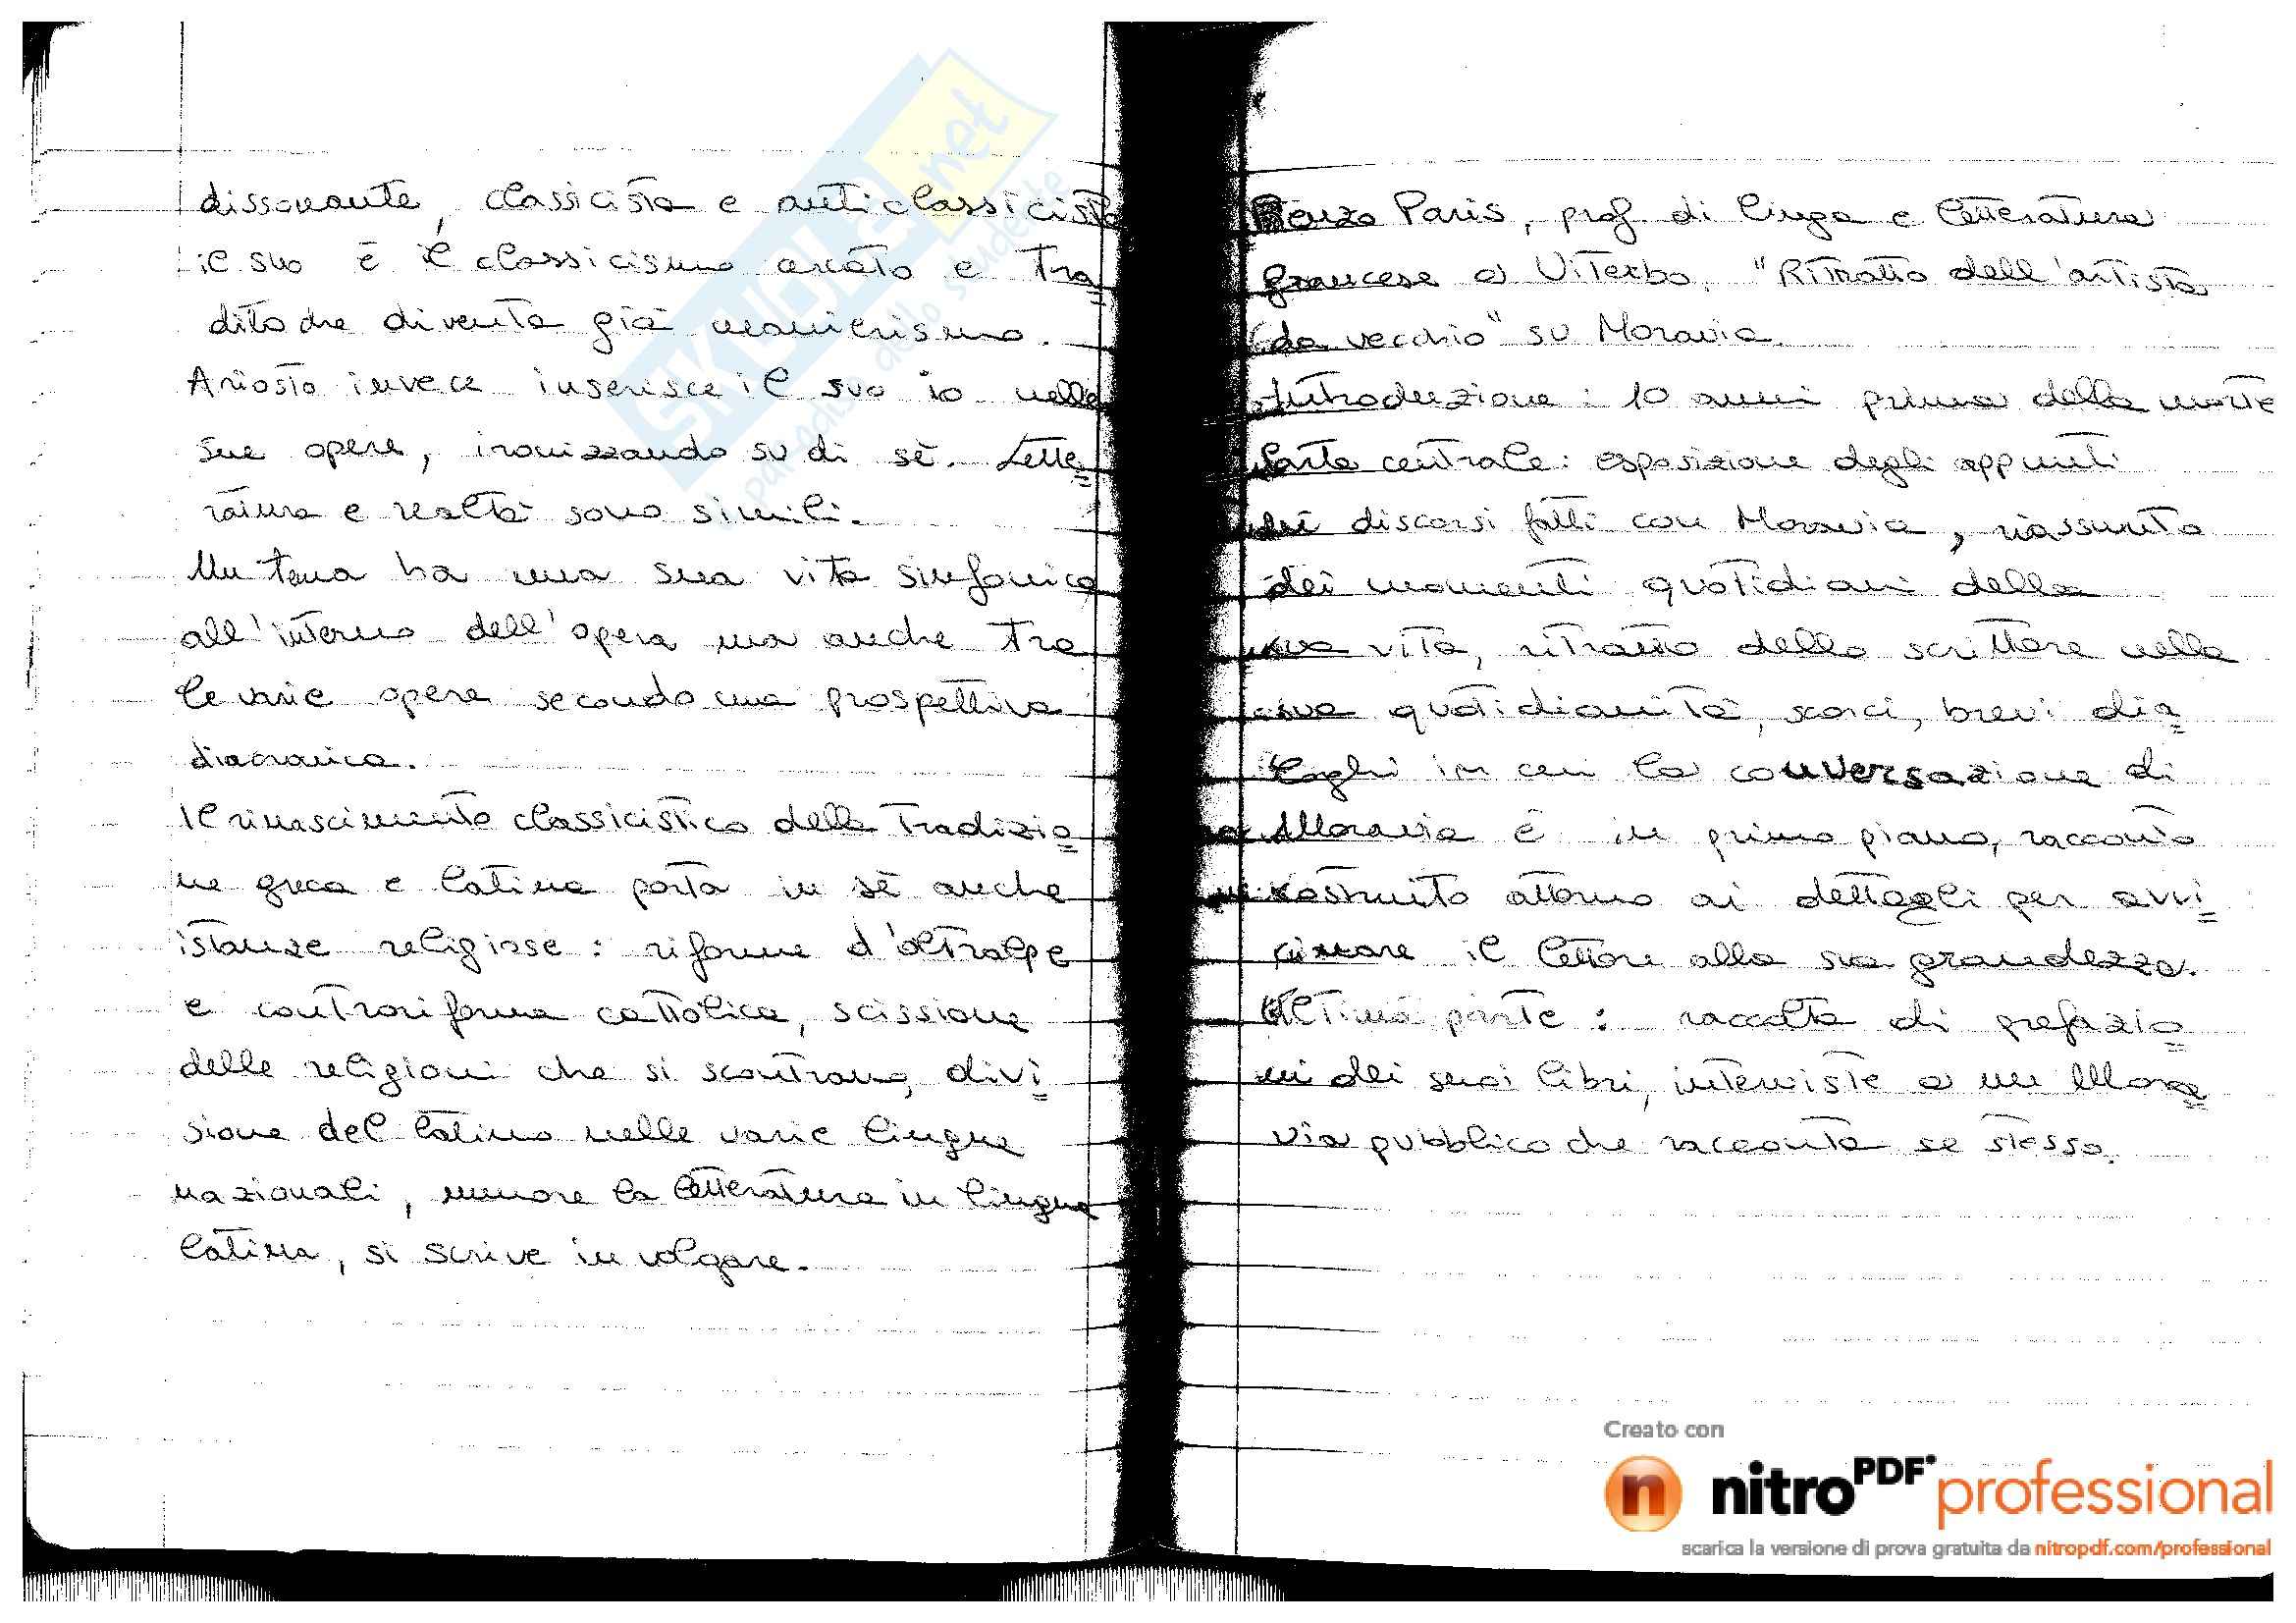 dissonante, classicista e anticlassicista
il suo è il classicismo amato e tra=
dito che diventa già manierismo.
Ariosto invece inserisce il suo io nelle
sue opere, ironizzando su di sè. Lette=
ratura e realtà sono simili.
Un tema ha una sua vita sinfonica
all'interno dell'opera ma anche tra
le varie opere secondo una prospettiva
diacronica.
Il rinascimento classicistico della tradizio=
ne greca e latina porta in sè anche
istanze religiose: riforme d'oltralpe
e controriforma cattolica, scissione
delle religioni che si scontrano, divi=
sione del latino nelle varie lingue
nazionali, muore la letteratura in lingua
latina, si scrive in volgare.
Renzo Paris, prof. di linga e letteratura
francese a Viterbo, "Ritratto dell'artista
da vecchio" su Moravia.
Introduzione: 10 anni prima della morte
Parte centrale: esposizione degli appunti
dei discorsi fatti con Moravia, riassunto
dei momenti quotidiani della
sua vita, ritratto dello scrittore nella
sua quotidianità, scorci, brevi dia=
loghi in cui la conversazione di
Moravia è in primo piano, racconto
costruito attorno ai dettagli per avvi=
cinare il lettore alla sua grandezza.
Ultima parte: raccolta di prefazio=
ni dei suoi libri, interviste a un Mora=
via pubblico che racconta se stesso.
SKUOLA.net
paradiso dello studente
Creato con
nitroPDF professional
scarica la versione di prova gratuita da nitropdf.com/professional